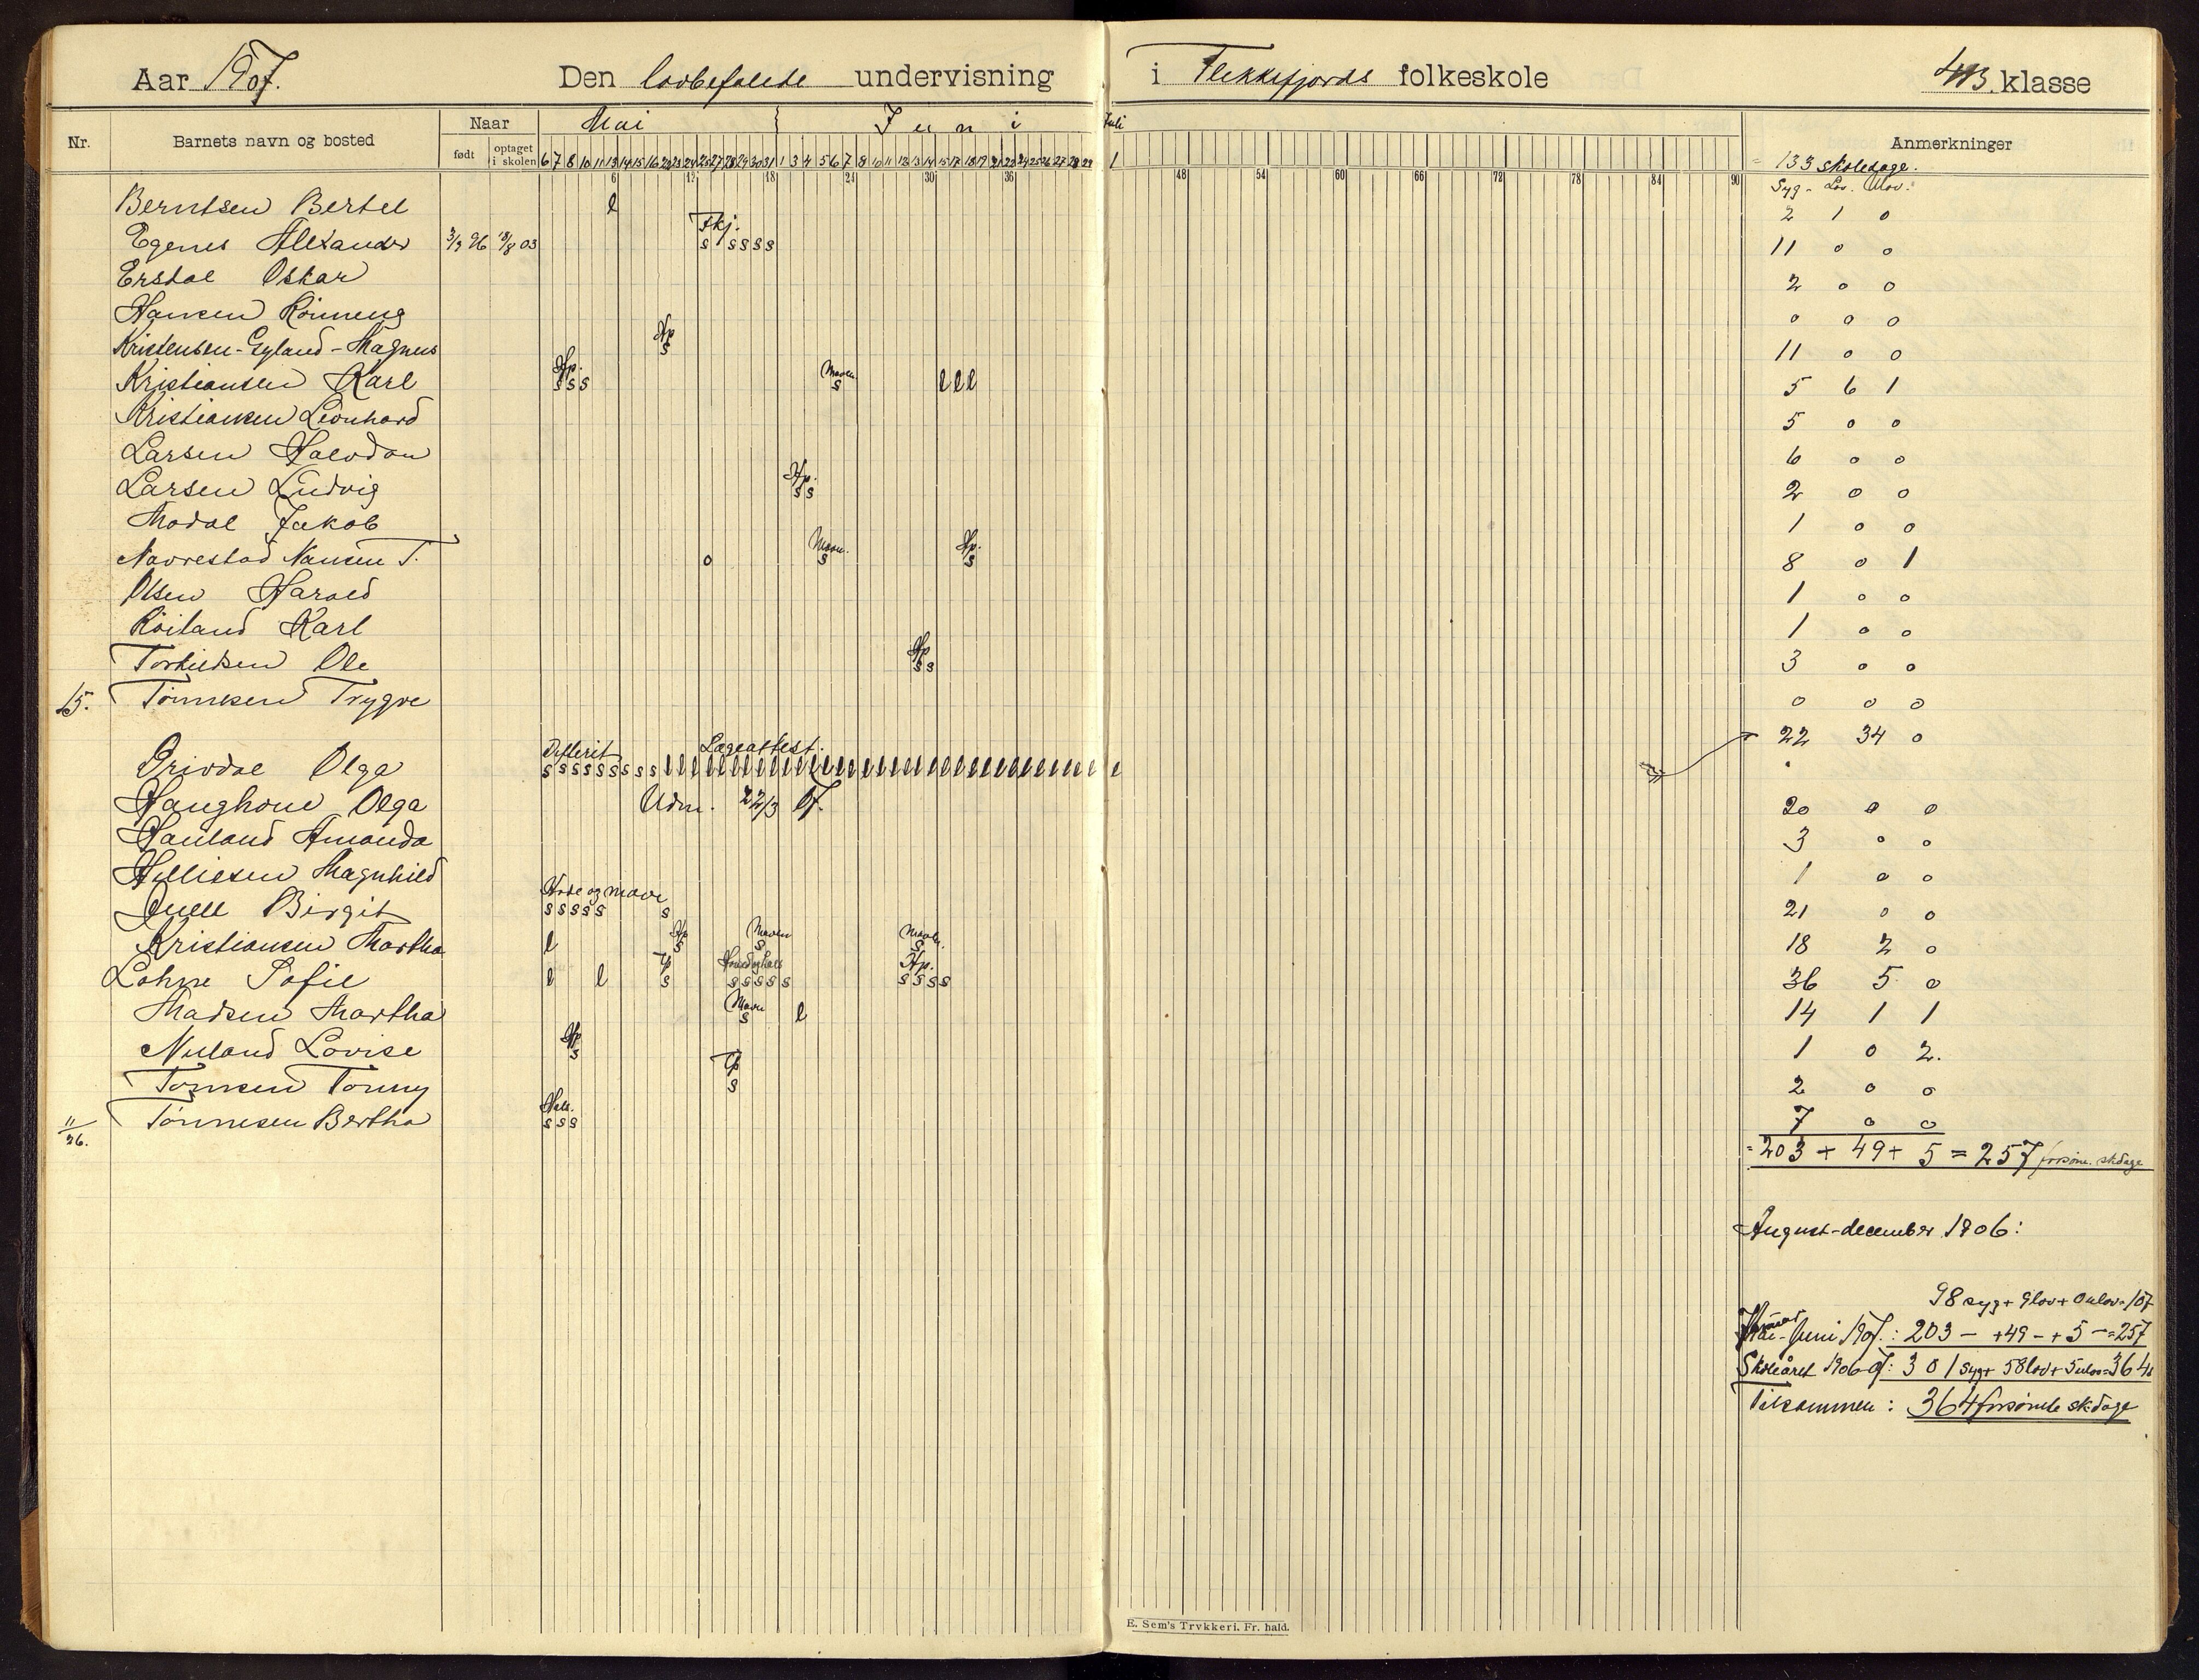 Aar 1907. Den lovbefalede undervisning i Flekkefjords folkeskole 4B. klasse
Nr. Barnets navn og bosted Naar Mai Juni Juli Anmerkninger
født optaget i skolen 6 7 8 10 11 13 14 15 16 22 23 24 25 27 28 29 30 31 1 3 4 5 6 7 8 10 11 12 13 14 15 17 18 19 21 22 24 25 26 27 28 29 1 = 133 skoledage.
6 12 18 24 30 36 48 54 60 66 72 78 84 90 Syg - Lov. Ulov.
Berntsen Bertel l 2 1 0
Egenes Alexander 3/3 96 18/8 03 Fkj. s s s s s 11 0 0
Ersdal Oskar 2 0 0
Hansen Rönneng 0 0 0
Kristensen-Gyland-Magnus Hp s 11 0 0
Kristiansen Karl Hp. s s s Maven s l l l 5 6 1
Kristiansen Leonhard 5 0 0
Larsen Halvdan 6 0 0
Larsen Ludvig Hp. s s 2 0 0
Modal Jakob 1 0 0
Navrestad Nansen T. 0 Maven. s Hp. s 8 0 1
Olsen Harald 1 0 0
Röiland Karl 1 0 0
Torkildsen Ole Hp s s 3 0 0
15. Tönnesen Trygve 0 0 0
Drivdal Olga Difterit Lægeattest. s s s s s s s s s l l l l l l l l l l l l l l l l l l l l l l l l l l l l l l l l l l 22 34 0
Haughom Olga Udm. 22/3 07. 20 0 0
Hauland Amanda 3 0 0
Helliesen Magnhild 1 0 0
Juell Birgit Hode og mave s s s s s s 21 0 0
Kristiansen Martha l Hp s Maven s Maven. s 18 2 0
Lohne Sofie l l Tp s Hoved og hals s s s s s Hp. s s s s 36 5 0
Madsen Martha Maven s l 14 1 1
Nuland Lovise Hp s 1 0 2.
Tönnesen Tonny Tp s 2 0 0
11/26. Tönnesen Bertha Hals. s s s 7 0 0
= 203 + 49 + 5 = 257 forsömte skdage
August-december 1906:
98 syg + 9 lov + 0 ulov = 107
Januar - Juni 1907.: 203 - + 49 - + 5 - = 257
Skoleåret 1906-07: 301 syg + 58 lov + 5 ulov = 364
Tilsammen: 364 forsömte sk.dage
E. Sem's Trykkeri. Fr. hald.